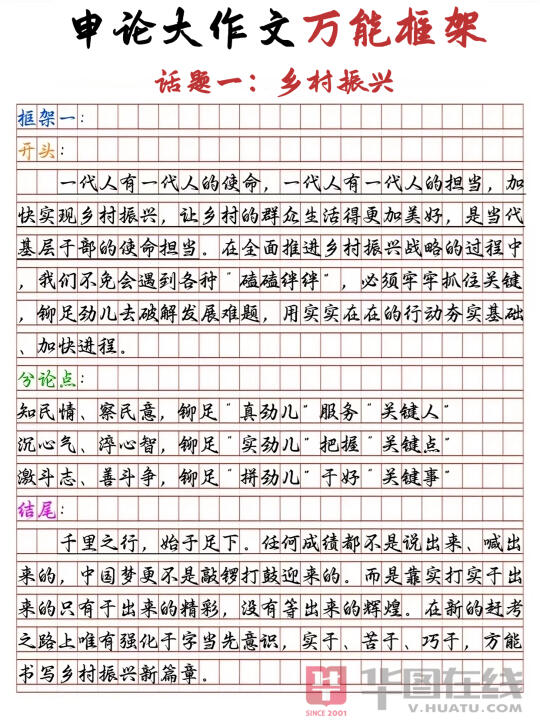 申论大作文万能框架
话题一：乡村振兴
框架一：
开头：
一代人有一代人的使命，一代人有一代人的担当，加
快实现乡村振兴，让乡村的群众生活得更加美好，是当代
基层干部的使命担当。在全面推进乡村振兴战略的过程中
，我们不免会遇到各种“磕磕绊绊”，必须牢牢抓住关键
，铆足劲儿去破解发展难题，用实实在在的行动夯实基础
、加快进程。
分论点：
知民情、察民意，铆足“真劲儿”服务“关键人”
沉心气、淬心智，铆足“实劲儿”把握“关键点”
激斗志、善斗争，铆足“拼劲儿”干好“关键事”
结尾：
千里之行，始于足下。任何成绩都不是说出来、喊出
来的，中国梦更不是敲锣打鼓迎来的。而是靠实打实干出
来的只有干出来的精彩，没有等出来的辉煌。在新的赶考
之路上唯有强化干字当先意识，实干、苦干、巧干，方能
书写乡村振兴新篇章。
华图在线
SINCE 2001
V.HUATU.COM